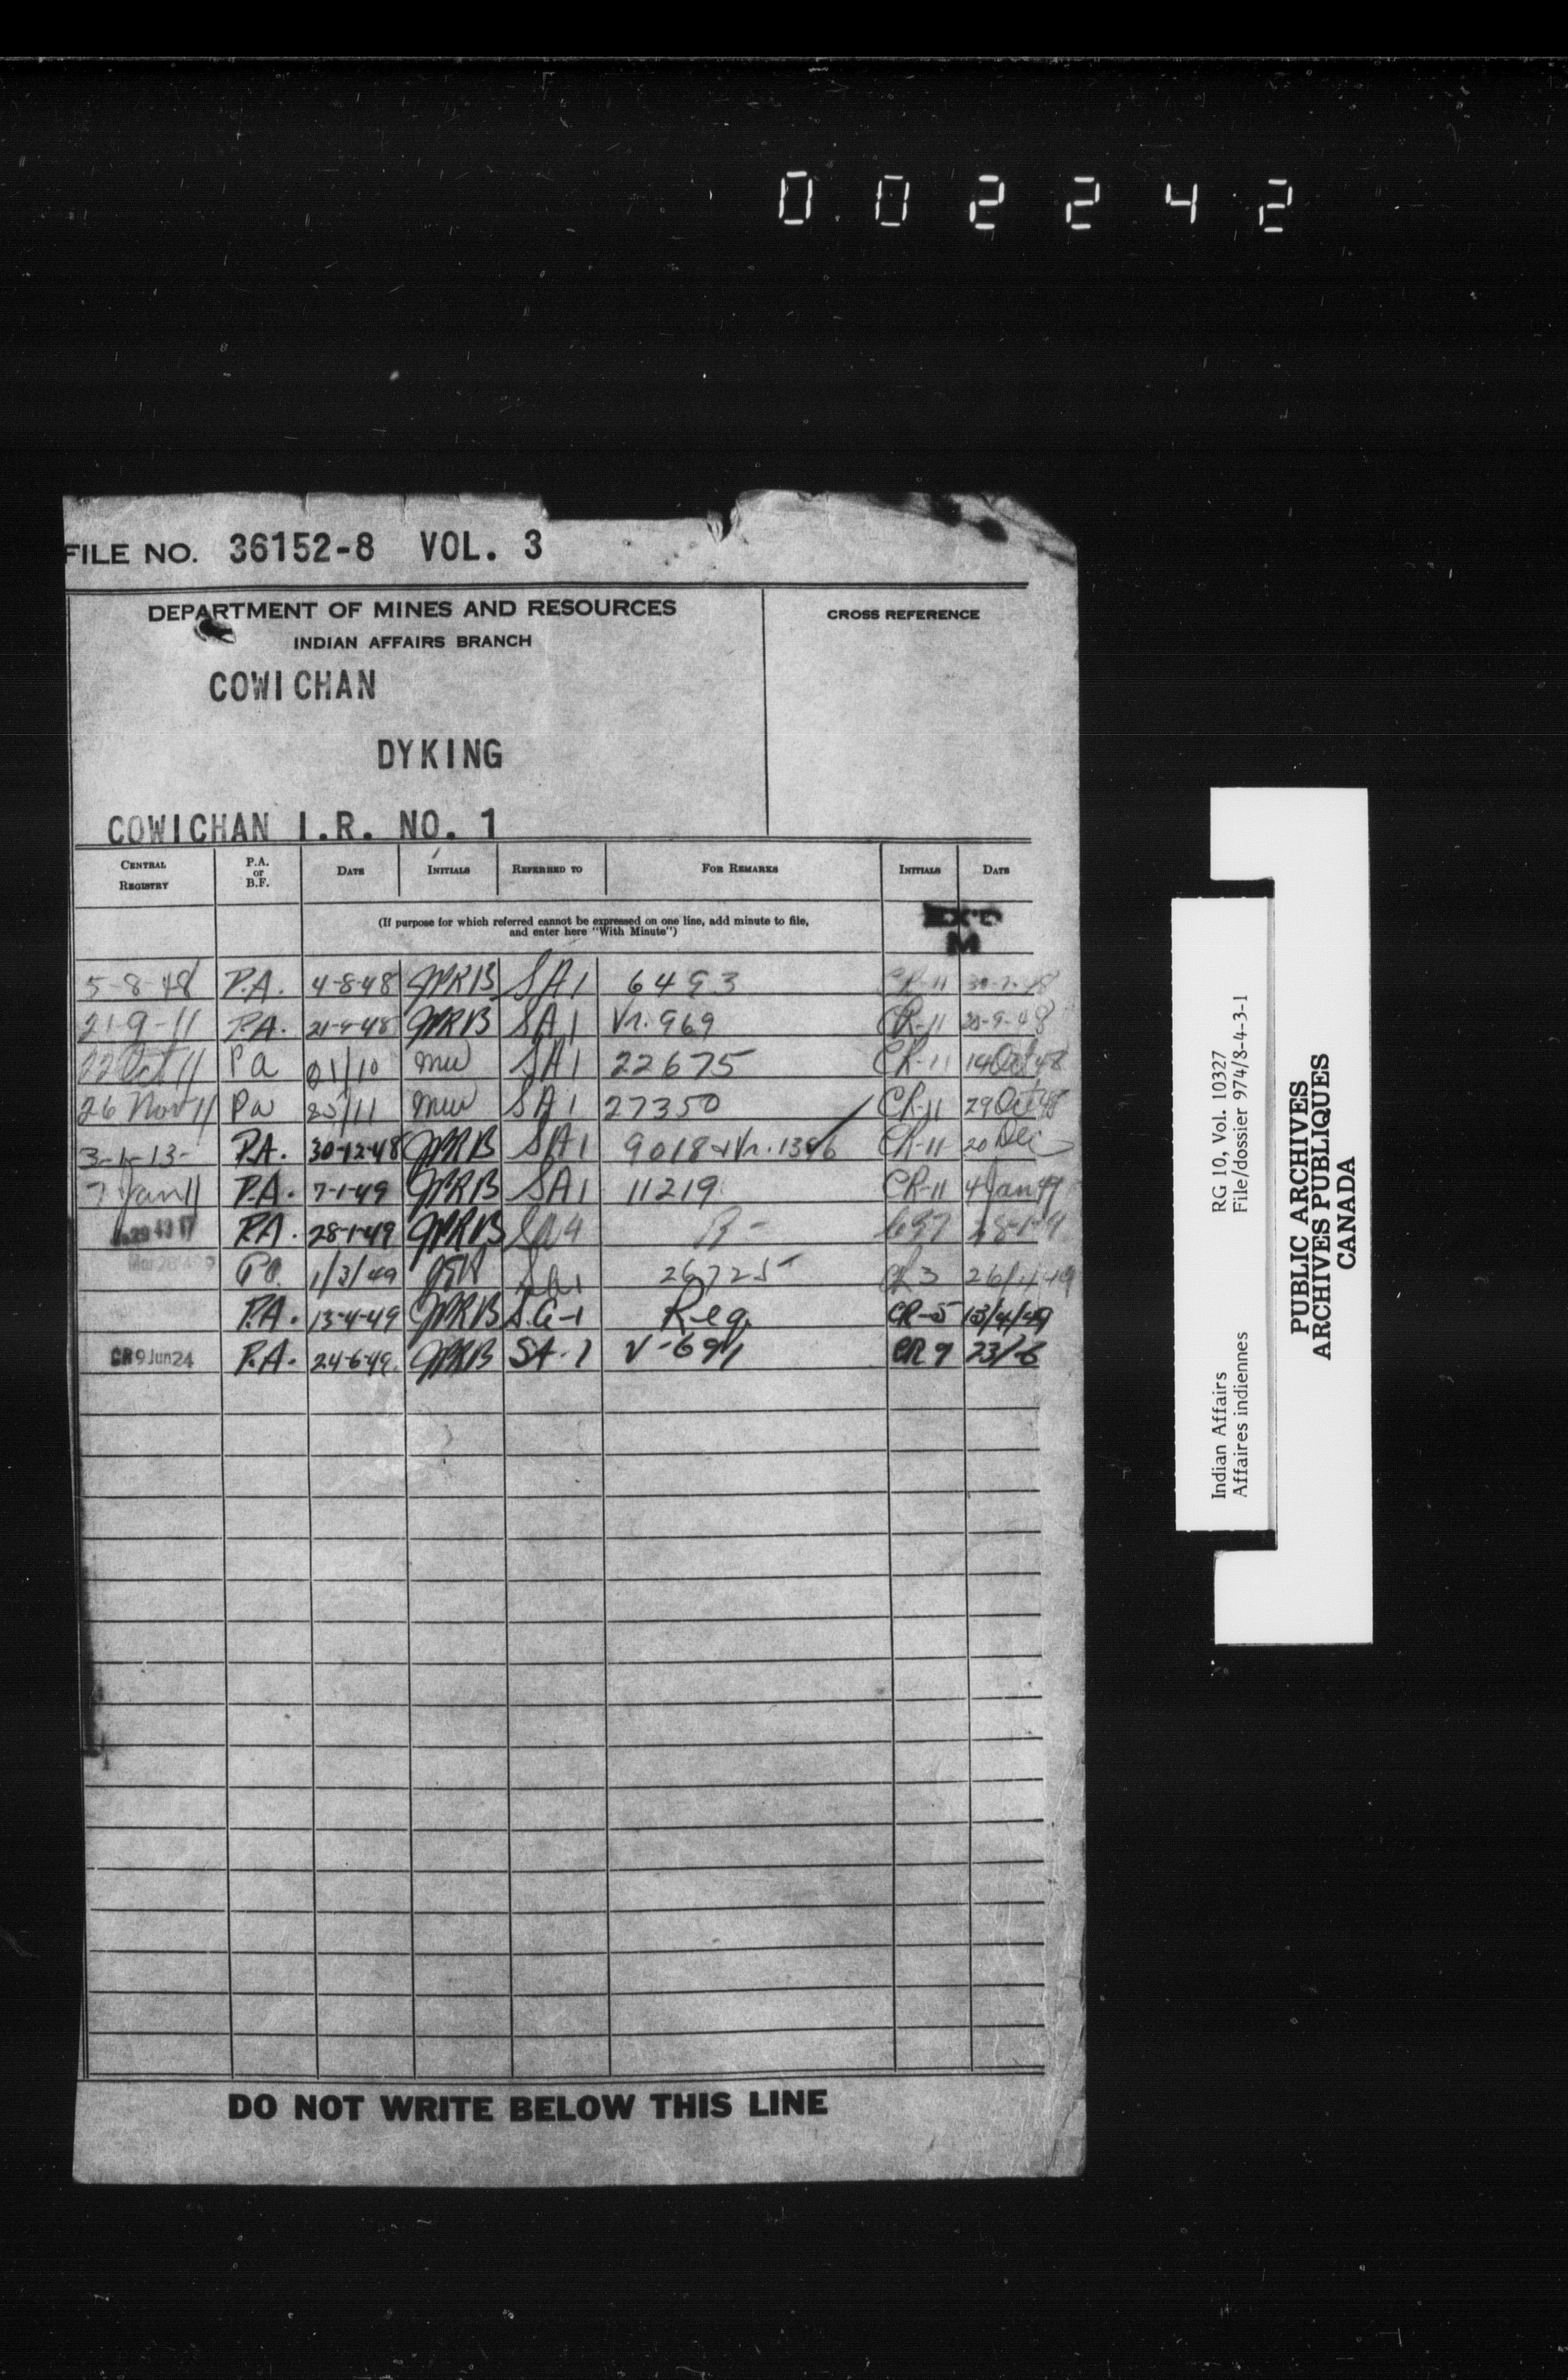 0 0 2 2 4 2
FILE NO. 36152-8 VOL. 3
DEPARTMENT OF MINES AND RESOURCES
INDIAN AFFAIRS BRANCH
CROSS REFERENCE
COWICHAN
DYKING
COWICHAN I.R. NO. 1
CENTRAL REGISTRY P.A. or B.F. DATE INITIALS REFERRED TO FOR REMARKS INITIALS DATE
(If purpose for which referred cannot be expressed on one line, add minute to file,
and enter here "With Minute")
EX'D
M
5-8-48 P.A. 4-8-48 JPRB SA1 6493 CR-11
21-9-11 P.A. 21-9-48 JPRB SA1 Vr. 969 CR-11 20-9-48
22 Oct 11 Pa 21/10 mw SA1 22675 CR-11 19 Oct 48
26 Nov 11 Pa 25/11 mw SA1 27350 CR-11 29 Oct 48
3-1-13- P.A. 30-12-48 JPRB SA1 9018 + Vr. 1396 CR-11 20 Dec
7 Jan 11 P.A. 7-1-49 JPRB SA1 11219 CR-11 4 Jan 49
P.A. 28-1-49 JPRB SA4 R- 28-1-49
Pa. 1/3/49 SA1 26725 CR3
P.A. 13-4-49 JPRB S.A-1 Req. CR-5 13/4/49
CR 9 Jun 24 P.A. 24-6-49. JPRB SA-1 V-691 CR 9 23/6
DO NOT WRITE BELOW THIS LINE
Indian Affairs RG 10, Vol. 10327
Affaires indiennes File/dossier 974/8-4-3-1
PUBLIC ARCHIVES
ARCHIVES PUBLIQUES
CANADA